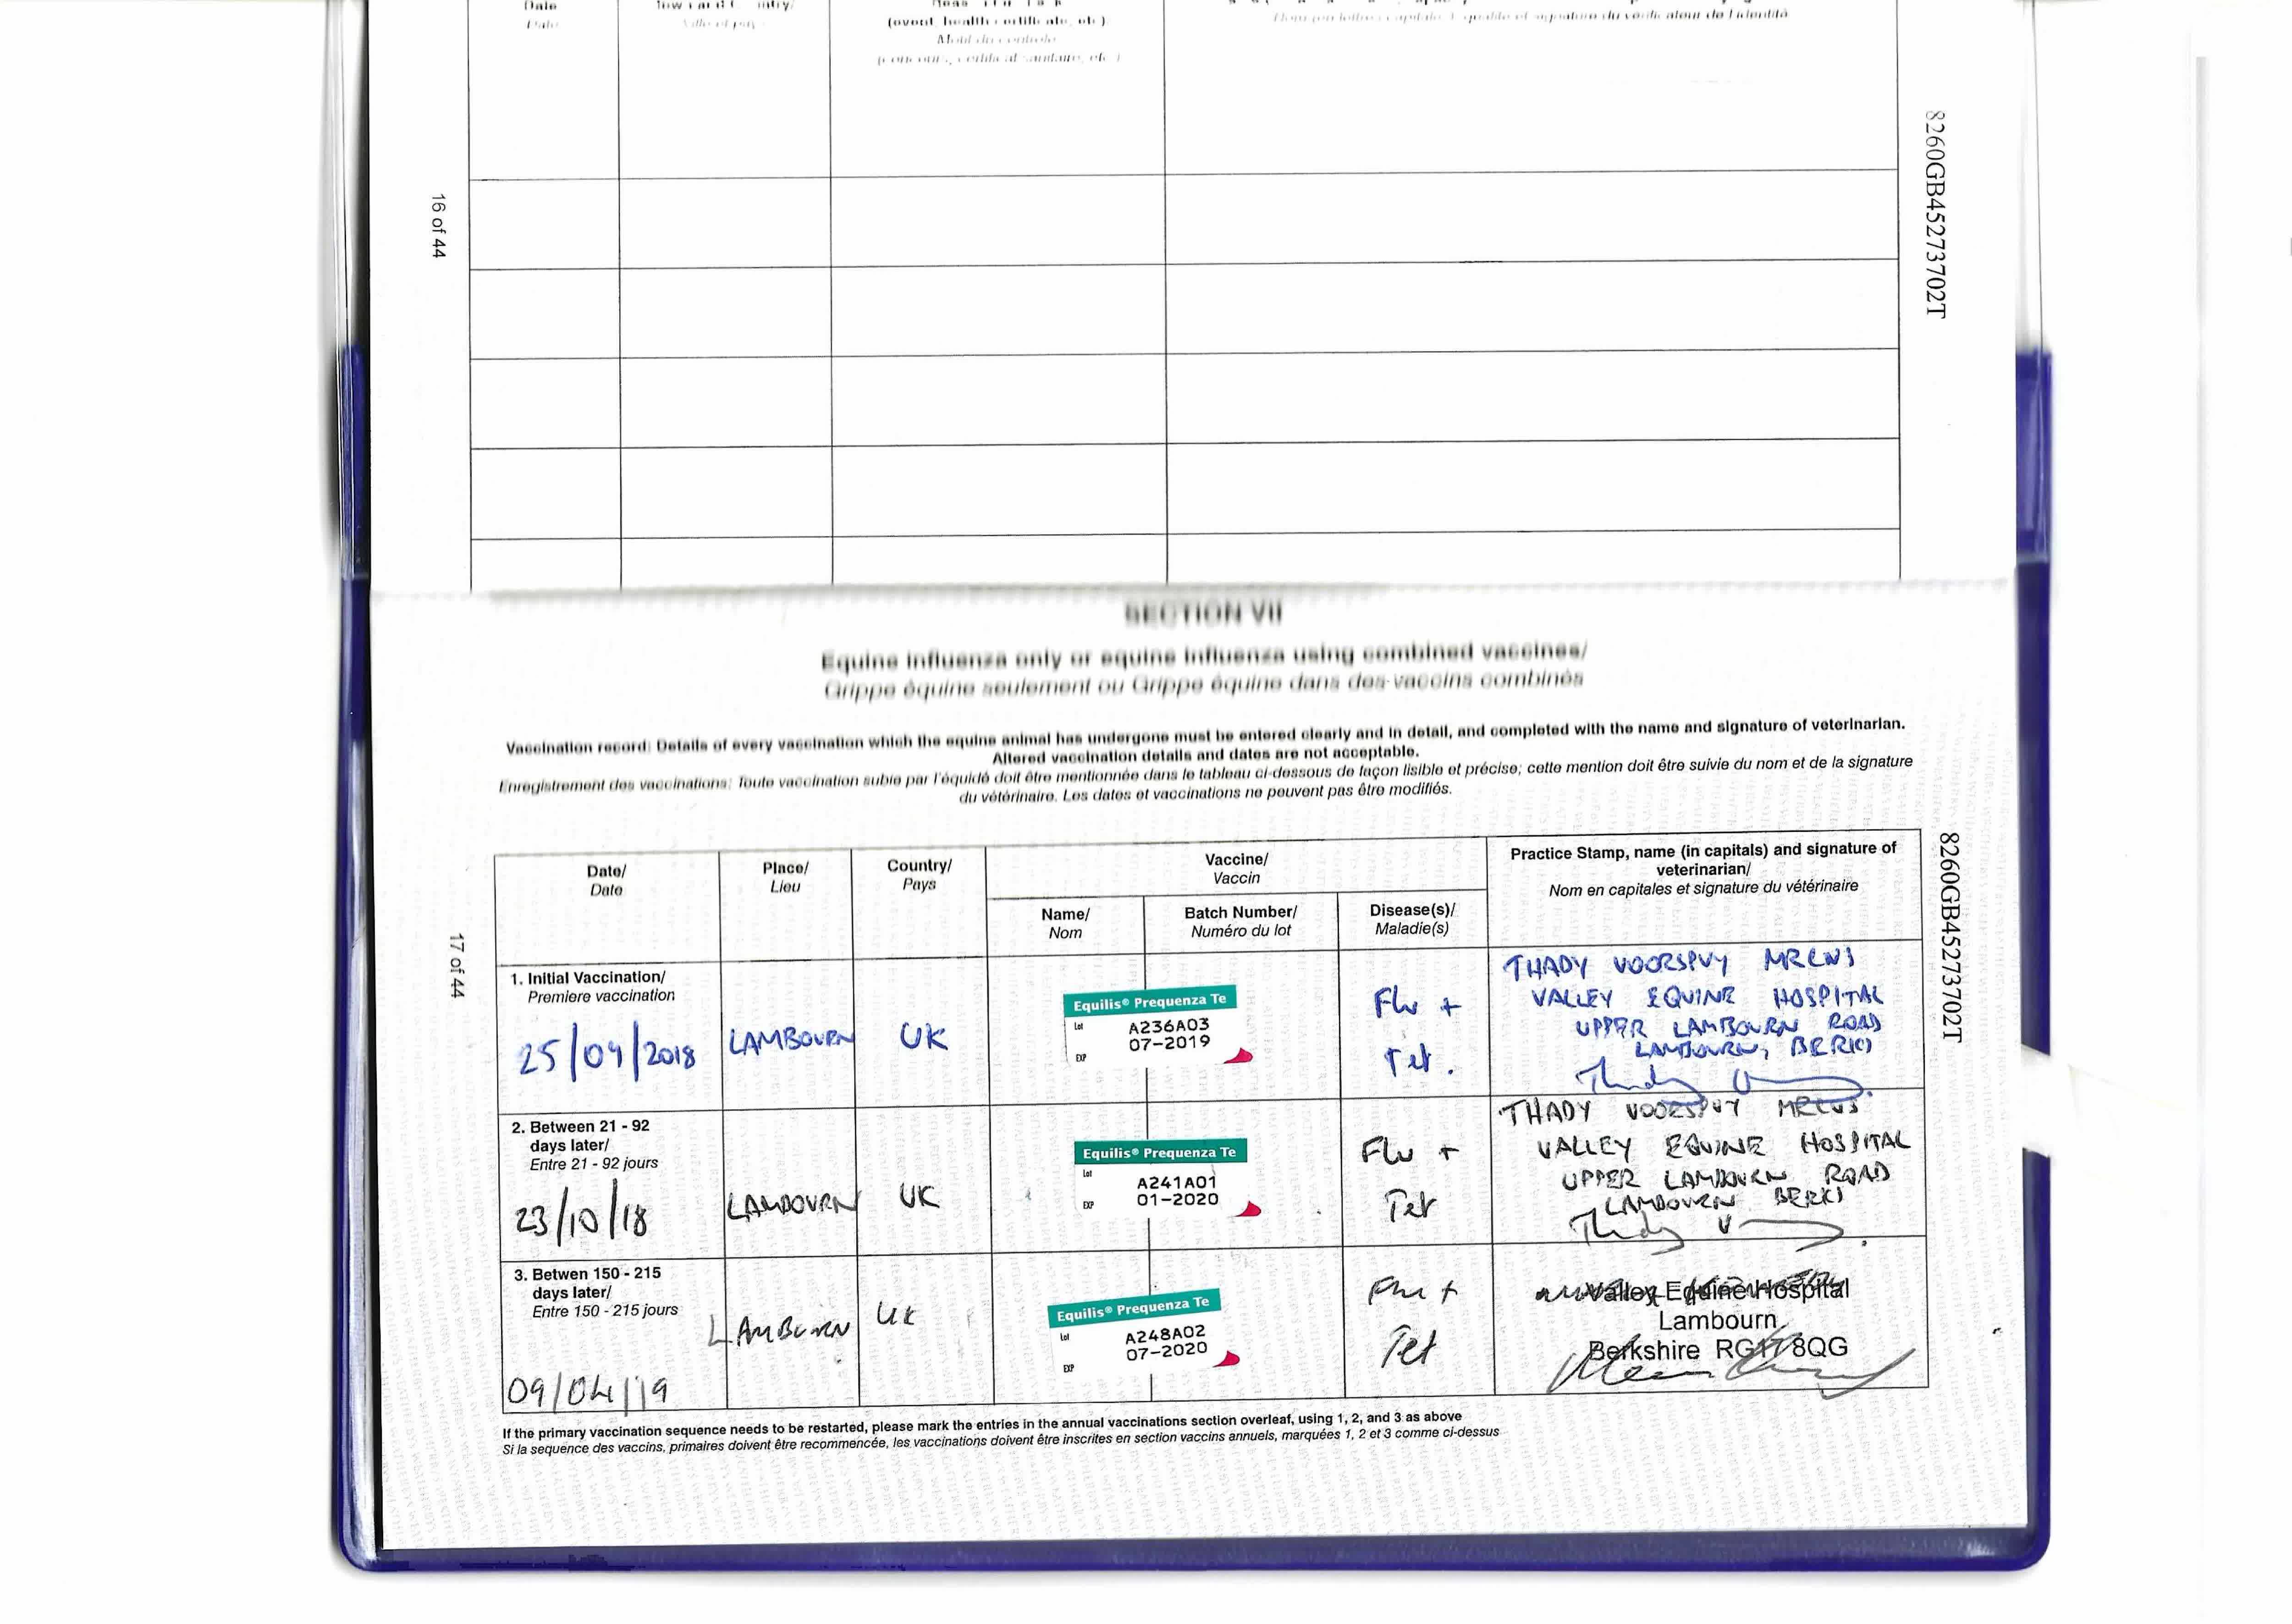 Date/
Date
(event, health certificate, etc.)
Motif du contrôle
(concours, certificat sanitaire, etc.)
16 of 44
8260GB45273702T
SECTION VII
Equine influenza only or equine influenza using combined vaccines/
Grippe équine seulement ou Grippe équine dans des vaccins combinés
Vaccination record: Details of every vaccination which the equine animal has undergone must be entered clearly and in detail, and completed with the name and signature of veterinarian.
Altered vaccination details and dates are not acceptable.
Enregistrement des vaccinations: Toute vaccination subie par l'équidé doit être mentionnée dans le tableau ci-dessous de façon lisible et précise; cette mention doit être suivie du nom et de la signature
du vétérinaire. Les dates et vaccinations ne peuvent pas être modifiés.
Date/
Date
Place/
Lieu
Country/
Pays
Vaccine/
Vaccin
Name/
Nom
Batch Number/
Numéro du lot
Disease(s)/
Maladie(s)
Practice Stamp, name (in capitals) and signature of
veterinarian/
Nom en capitales et signature du vétérinaire
17 of 44
8260GB45273702T
1. Initial Vaccination/
Premiere vaccination
25/09/2018
LAMBOURN
UK
Equilis® Prequenza Te
Lot A236A03
07-2019
EXP
Flu +
Tet.
THADY VOORSPUY MRCVS
VALLEY EQUINE HOSPITAL
UPPER LAMBOURN ROAD
LAMBOURN, BERKS
2. Between 21 - 92
days later/
Entre 21 - 92 jours
23/10/18
LAMBOURN
UK
Equilis® Prequenza Te
Lot A241A01
01-2020
EXP
Flu +
Tet
THADY VOORSPUY MRCVS
VALLEY EQUINE HOSPITAL
UPPER LAMBOURN ROAD
LAMBOURN BERKS
3. Betwen 150 - 215
days later/
Entre 150 - 215 jours
09/04/19
LAMBOURN
UK
Equilis® Prequenza Te
Lot A248A02
07-2020
EXP
Flu +
Tet
Valley Equine Hospital
Lambourn
Berkshire RG17 8QG
If the primary vaccination sequence needs to be restarted, please mark the entries in the annual vaccinations section overleaf, using 1, 2, and 3 as above
Si la sequence des vaccins, primaires doivent être recommencée, les vaccinations doivent être inscrites en section vaccins annuels, marquées 1, 2 et 3 comme ci-dessus